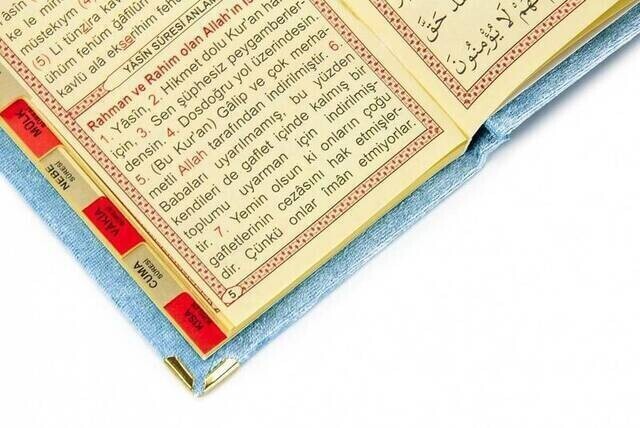 müstekıym
(5) Li tünzira
ühüm fehüm gâfilûn
kavlü alâ ekserihim fehüm
YÂSİN SÛRESİ
Rahman ve Rahim olan Allah'ın
1. Yâsîn, 2. Hikmet dolu Kur'an
için, 3. Sen şüphesiz peygamberler-
densin. 4. Dosdoğru yol üzerindesin.
5. (Bu Kur'an) Gâlip ve çok merha-
metli Allah tarafından indirilmiştir. 6.
Babaları uyarılmamış, bu yüzden
kendileri de gaflet içinde kalmış bir
toplumu uyarman için indirilmiş-
tir. 7. Yemin olsun ki onların çoğu
gafletlerinin cezâsını hak etmişler-
dir. Çünkü onlar îmân etmiyorlar.
5
حَقَّ
لَا يُؤْمِنُونَ
MÜLK
NEBE SÛRESİ
VAKIA
CUMA SÛRESİ
KISA